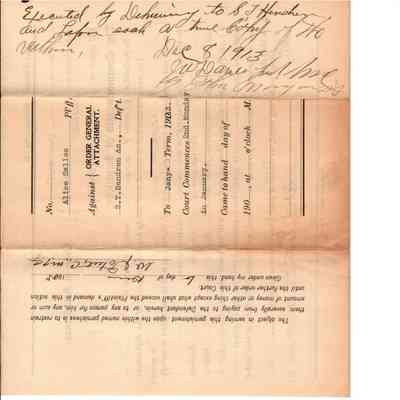 Executed by Delivering to S T Hendren
and Jafson each a true Copy of the
within,
Dec 8 1913
No.
Altee Sallas Pl'ff.
Against { ORDER GENERAL ATTACHMENT.
S.T.Hendren &c., Def't.
To Jany. Term, 1913.
Court Commences 2nd. Monday
in January.
Came to hand day of
190 , at o'clock M.
The object in serving this garnishment upon the within named garnishees is to restrain
them severally from paying to the Defendant herein, or to any person for him, any sum or
amount of money or other thing except what shall exceed the Plaintiff's demand in this action
until the further order of this Court.
Given under my hand, this 6 day of Dec 190